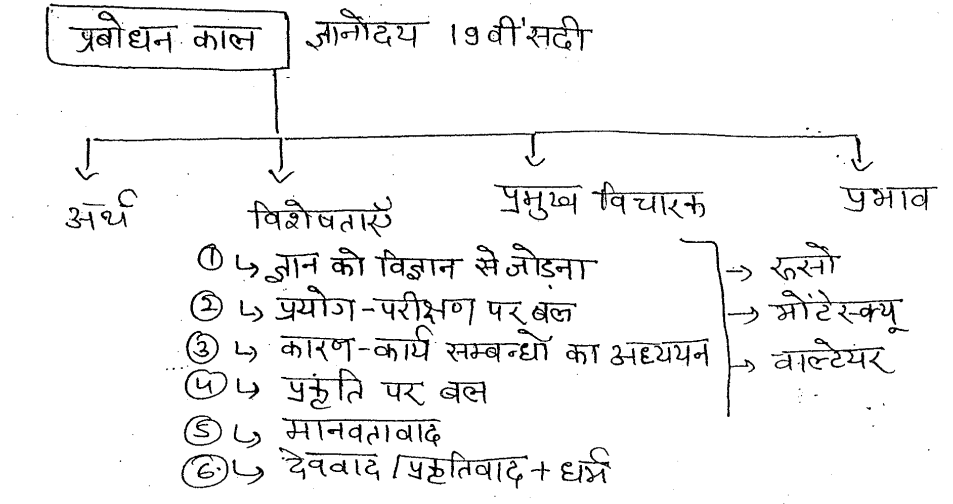 प्रबोधन काल ज्ञानोदय 19वीं सदी
अर्थ विशेषताएँ प्रमुख विचारक प्रभाव
① ↳ ज्ञान को विज्ञान से जोड़ना → रूसो
② ↳ प्रयोग-परीक्षण पर बल → मोंटेस्क्यू
③ ↳ कारण-कार्य सम्बन्धों का अध्ययन → वाल्टेयर
④ ↳ प्रकृति पर बल
⑤ ↳ मानवतावाद
⑥ ↳ देववाद / प्रकृतिवाद + धर्म